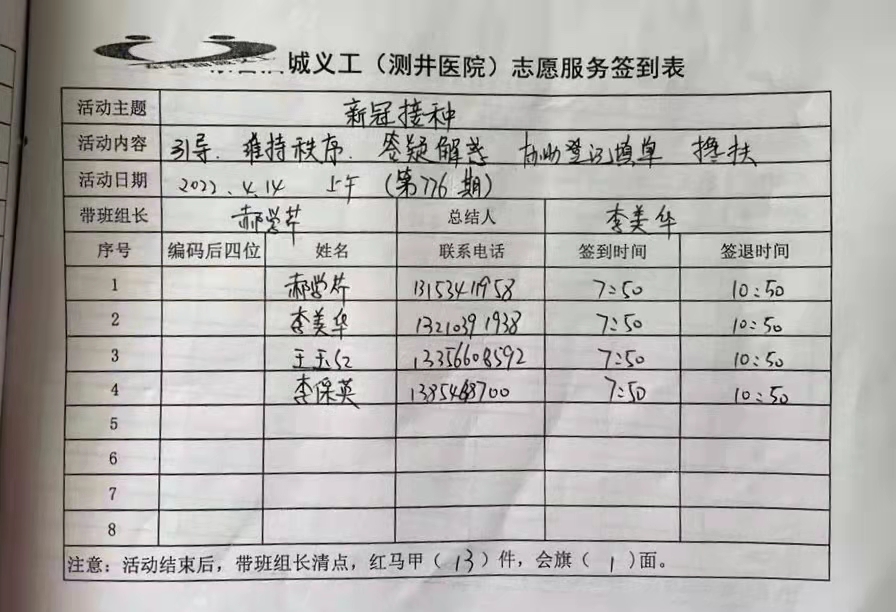 城义工（测井医院）志愿服务签到表
活动主题 新冠接种
活动内容 引导. 维持秩序. 答疑解惑 协助登记填单 搀扶
活动日期 2022.4.14 上午（第776期）
带班组长 郝学芹 总结人 李美华
序号 编码后四位 姓名 联系电话 签到时间 签退时间
1 郝学芹 13153411958 7:50 10:50
2 李美华 13210391938 7:50 10:50
3 王玉红 13356608592 7:50 10:50
4 李保英 7:50 10:50
5
6
7
8
注意：活动结束后，带班组长清点，红马甲（13）件，会旗（1）面。